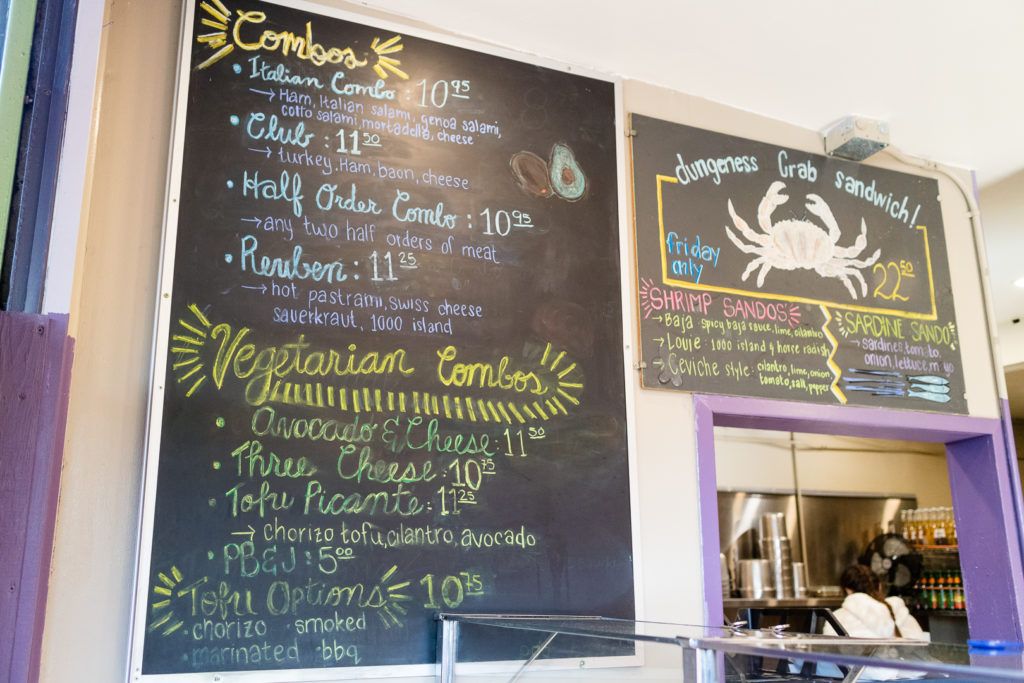 Combos
• Italian Combo : 10 95
→ Ham, Italian salami, genoa salami,
cotto salami, mortadella, cheese
• Club : 11 50
→ turkey, Ham, bacn, cheese
• Half Order Combo : 10 95
→ any two half orders of meat
• Reuben : 11 25
→ hot pastrami, swiss cheese
sauerkraut, 1000 island
Vegetarian Combos
• Avocado & Cheese : 11 50
• Three Cheese : 10 75
• Tofu Picante : 11 25
→ chorizo tofu, cilantro, avocado
• PB & J : 5 00
Tofu Options 10 75
• chorizo • smoked
• marinated • bbq
dungeness Crab sandwich!
friday
only
22 50
SHRIMP SANDOS
→ Baja: spicy baja sauce, lime, cilantro
→ Louie: 1000 island & horse radish
→ Ceviche style: cilantro, lime, onion,
tomato, salt, pepper
SARDINE SANDO
→ sardines, tom. to,
onion, lettuce, m yo